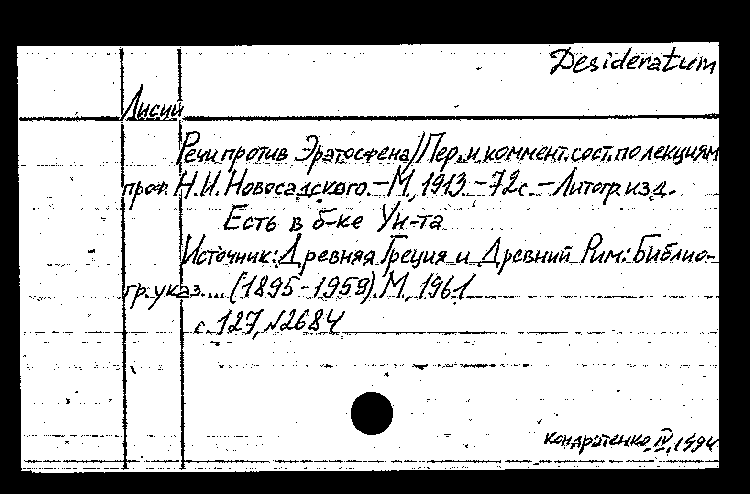 Desideratum
Лисий
Речи против Эратосфена/Пер. и коммент. сост. по лекциям
проф. Н.И. Новосадского. – М., 1913. – 72 с. – Литогр. изд.
Есть в б-ке Ун-та
Источник: Древняя Греция и Древний Рим: Библио-
гр. указ.... (1895-1959). М., 1961
с. 127, №2684
Кондратенко, IV, 1994